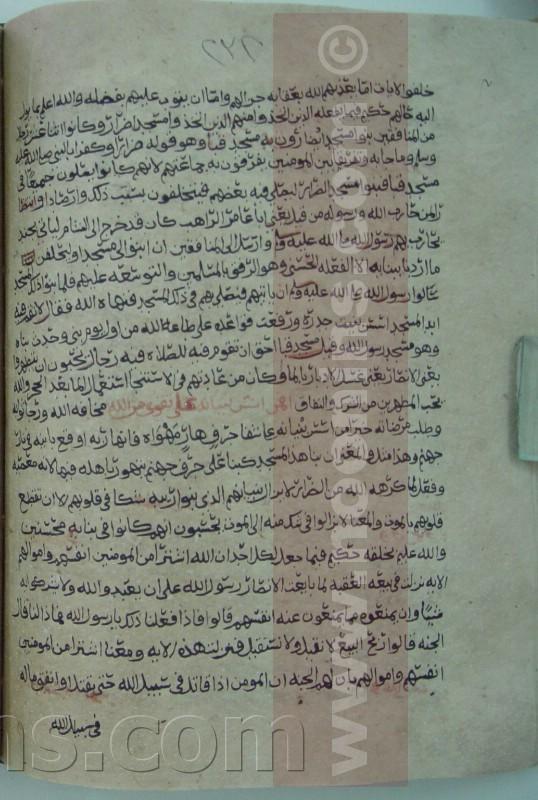 ٢٢٨
خلفوا الايات اما يعذبهم الله بعقابه جزا لهم واما ان يتوب عليهم بفضله والله اعلم بما يول
اليه حالهم حكيم فيما يفعله الذين اتخذوا ومنهم الذين اتخذوا مسجدا ضرارا وكانوا اثنا عشر رجلا
من المنافقين بنوا مسجدا يضارون به مسجد قبا وهو قوله ضرارا وكفرا بالنبي صلى الله عليه
وسلم وما جا به وتفريقا بين المومنين يفرقون به جماعتهم لانهم كانوا يصلون جميعا في
مسجد قبا فبنوا مسجد الضرار ليصلي فيه بعضهم فيختلفون بسبب ذلك وارصادا وانتظا
را لمن حارب الله ورسوله من قبل يعني ابا عامر الراهب كان قد خرج الى الشام لياتي بجند
يحارب بهم رسول الله صلى الله عليه وسلم وارسل الى المنافقين ان ابنوا لي مسجدا وليحلفن
ما اردنا ببنايه الا الفعله الحسنى وهو الرفق بالمسلمين والتوسعه عليهم فلما بنوا ذلك المسجد
سالوا رسول الله صلى الله عليه وسلم ان ياتيهم فيصلي بهم في ذلك المسجد فنهاه الله فقال لا تقم فيه
ابدا لمسجد اسس بنيت جدره ورفعت قواعده على طاعة الله من اول يوم بني وحدث بناه
وهو مسجد رسول الله وقيل مسجد قبا احق ان تقوم فيه للصلاة فيه رجال يحبون ان يتطهروا
يعني الانصار يعني غسل الادبار بالما وكان من عادتهم في الاستنجا استعمال الما بعد الحجر والله
يحب المطهرين من الشرك والنفاق افمن اسس بنيانه على تقوى من الله مخافة الله ورجا ثوابه
وطلب مرضاته خير امن اسس بنيانه على شفا جرف هار مهواه فانهار به اوقع بانيه في نار
جهنم وهذا مثل والمعنى ان بنا هذا المسجد كبنا على حرف جهنم يتهور باهله فيها لانه معصية
وفعل لما كرهه الله من الضرار لا يزال بنيانهم الذي بنوا ريبه شكا في قلوبهم الا ان تقطع
قلوبهم بالموت والمعنى لا يزالوا في شك منه الى الموت يحسبون انهم كانوا في بنايه محسنين
والله عليم بخلقه حكيم فيما جعل لكل احد ان الله اشترا من المومنين انفسهم واموالهم
الايه نزلت في بيعة العقبه لما بايعت الانصار رسول الله على ان يعبدوا الله ولا يشركوا به
شيئا وان يمنعوه مما يمنعون عنه انفسهم قالوا فاذا فعلنا ذلك يا رسول الله فماذا لنا قال
الجنه قالوا ربح البيع لا نقيل ولا نستقيل فنزلت هذه الايه ومعنا اشترا من المومنين
انفسهم واموالهم بان لهم الجنه ان المومن اذا قاتل في سبيل الله حتى يقتل او انفق ماله
في سبيل الله